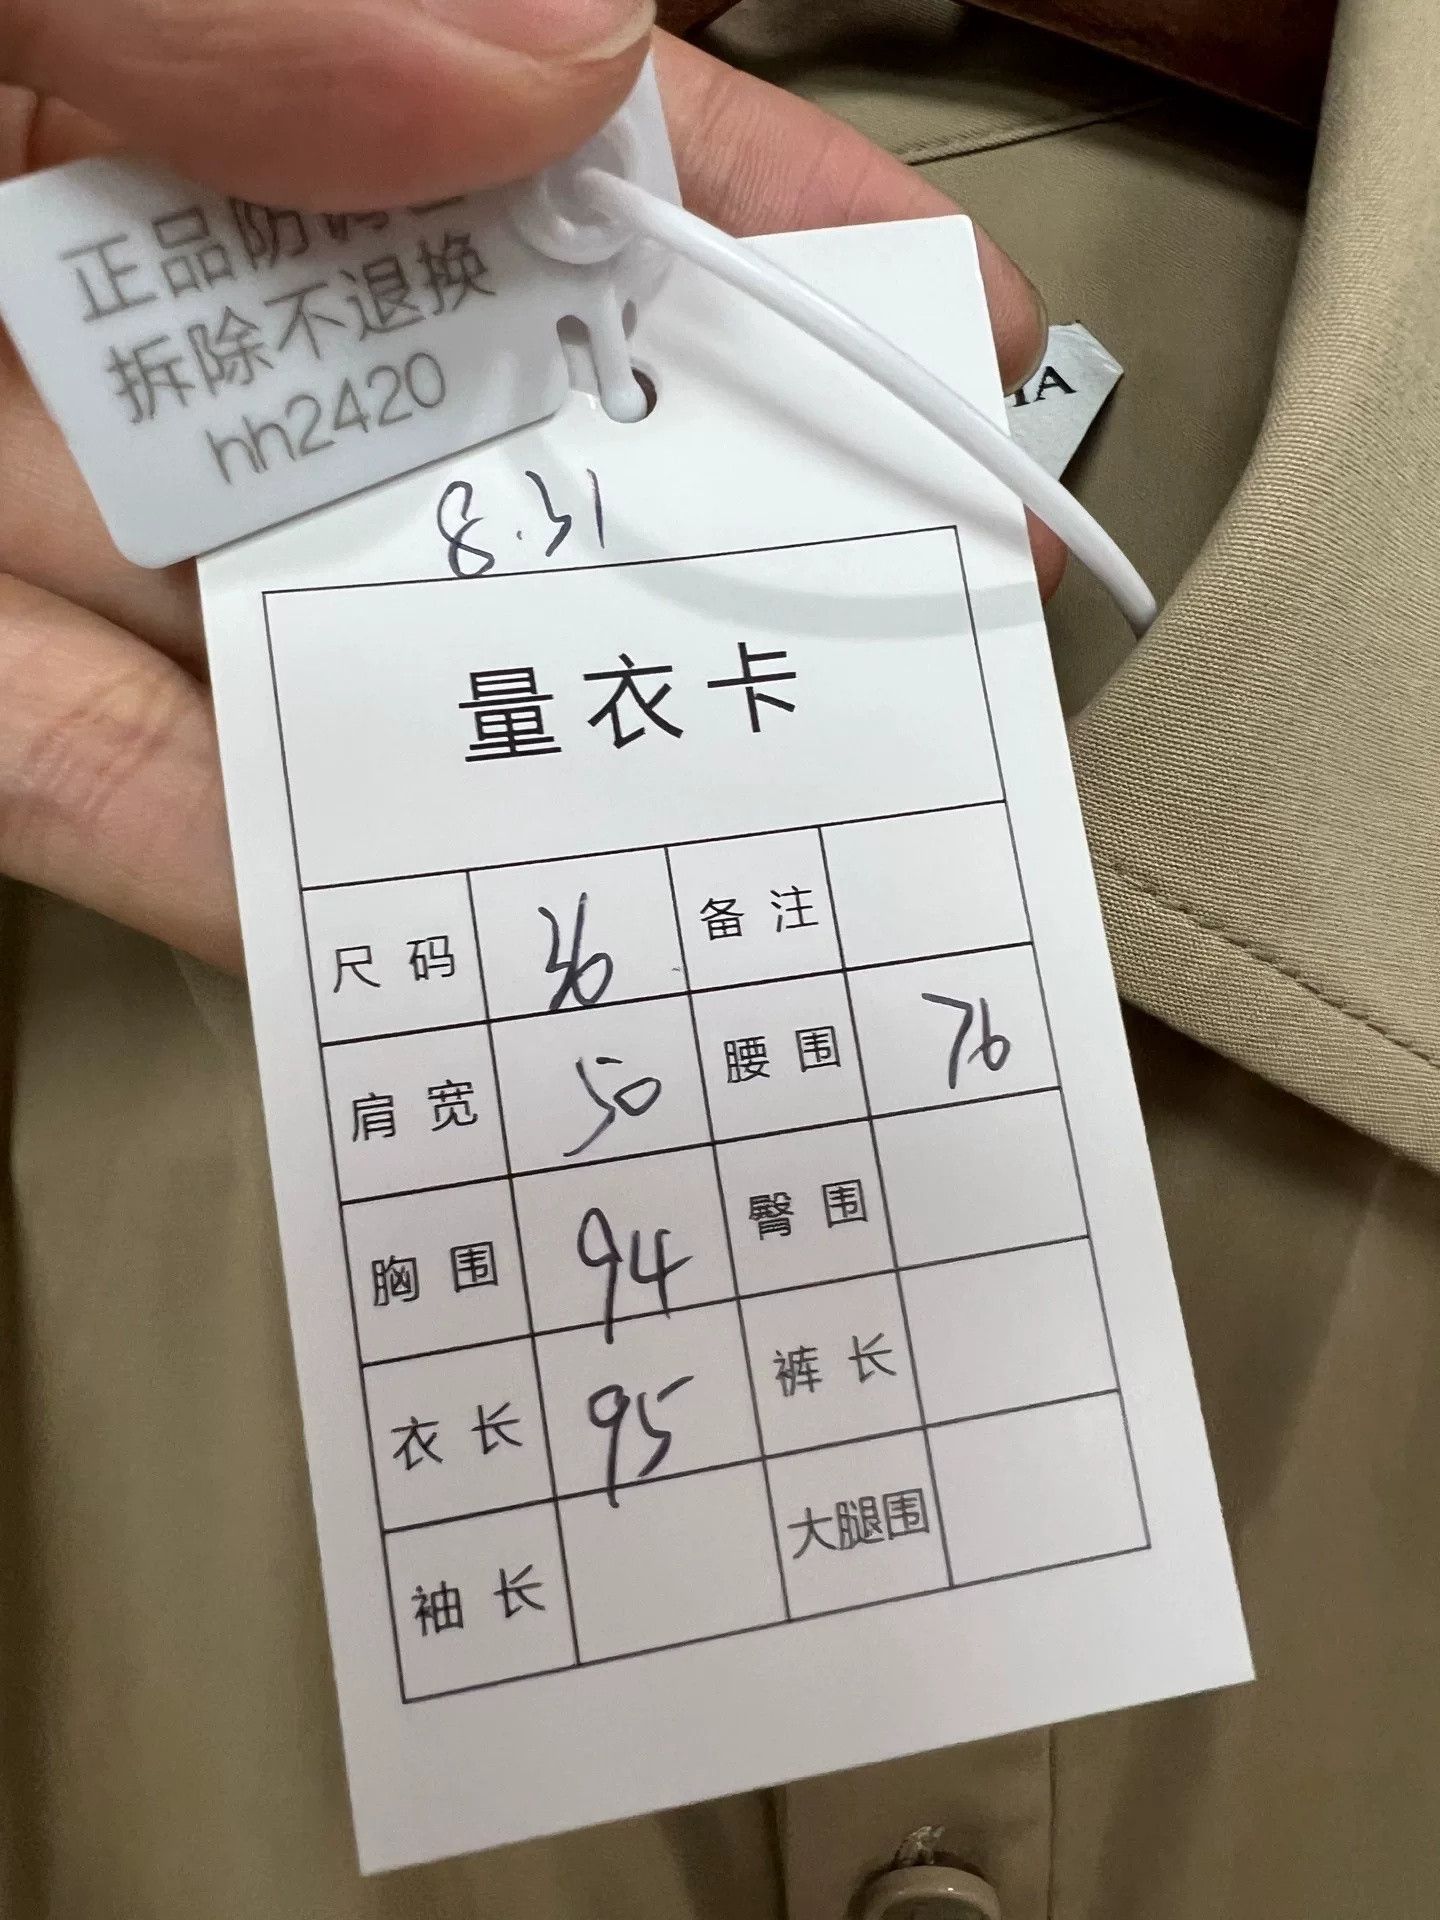 正品防调包
拆除不退换
hh2420
8.31
量衣卡
尺码 36 备注
肩宽 50 腰围 76
胸围 94 臀围
衣长 95 裤长
袖长 大腿围